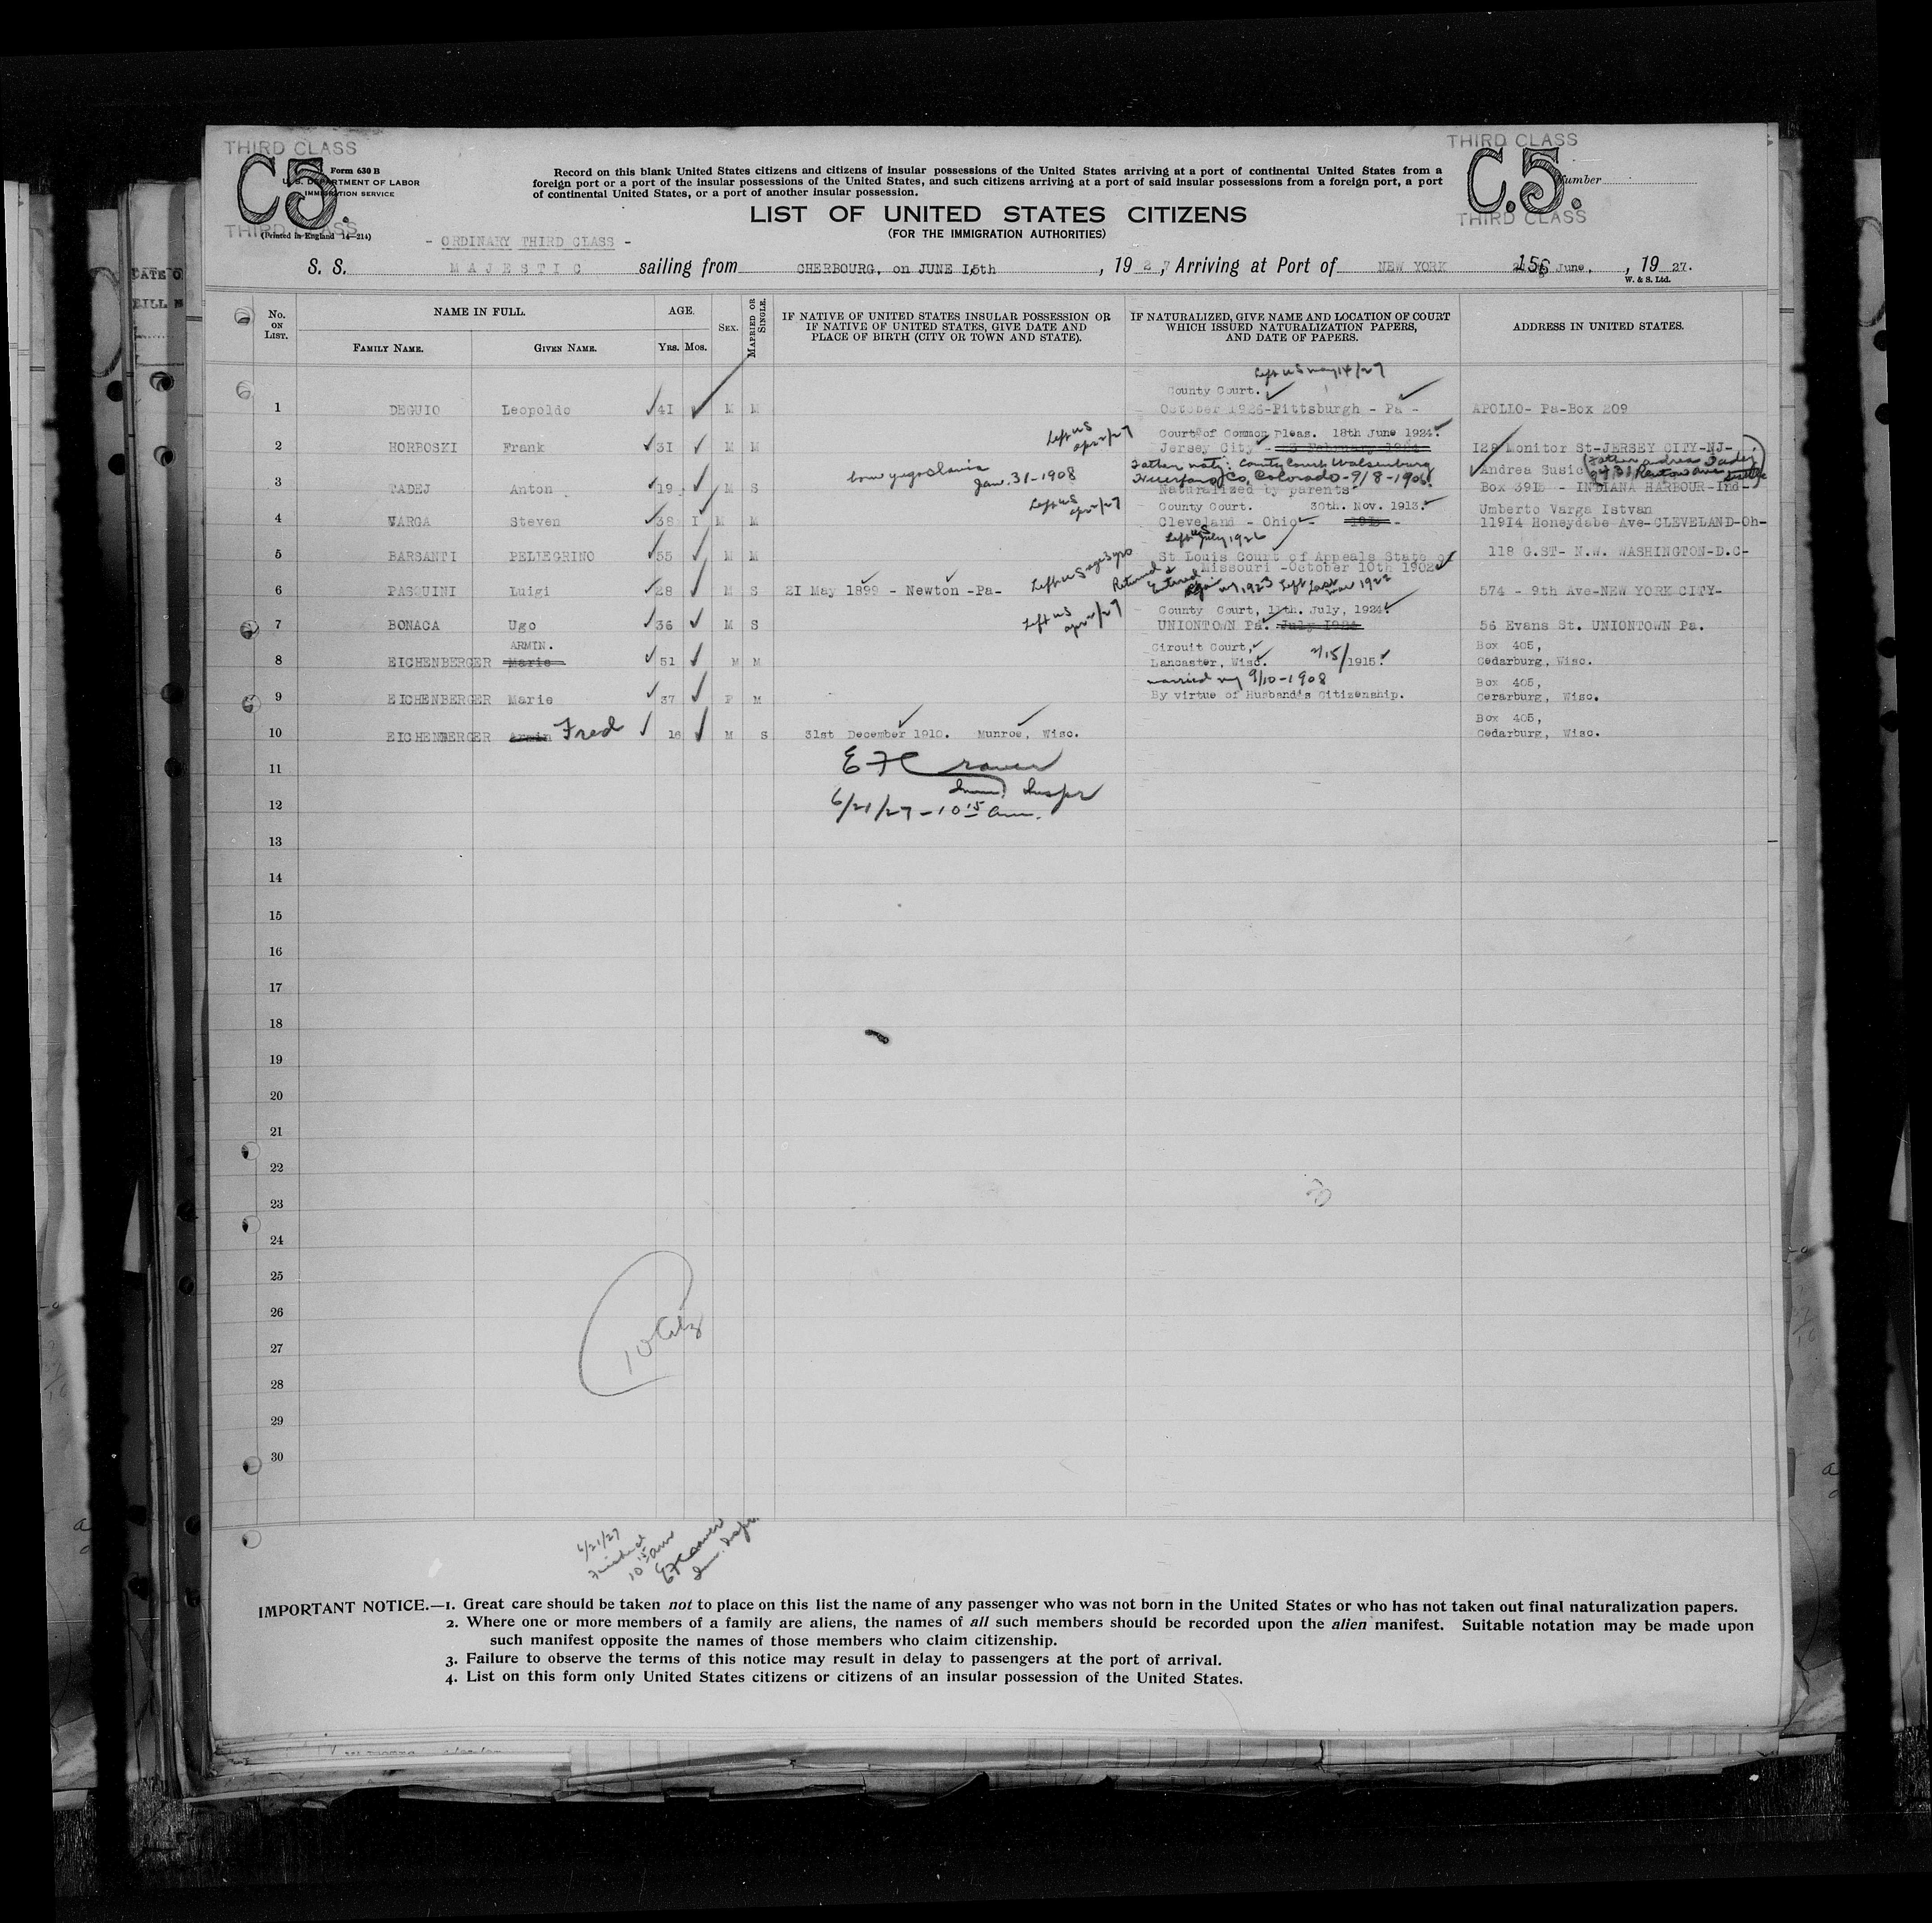 THIRD CLASS
C5.
Form 630 B
U. S. DEPARTMENT OF LABOR
IMMIGRATION SERVICE
THIRD CLASS
(Printed in England 14—214)
Record on this blank United States citizens and citizens of insular possessions of the United States arriving at a port of continental United States from a
foreign port or a port of the insular possessions of the United States, and such citizens arriving at a port of said insular possessions from a foreign port, a port
of continental United States, or a port of another insular possession.
THIRD CLASS
C.5.
Number
THIRD CLASS
LIST OF UNITED STATES CITIZENS
(FOR THE IMMIGRATION AUTHORITIES)
- ORDINARY THIRD CLASS -
S. S. MAJESTIC sailing from CHERBOURG, on JUNE 15th, 1927, Arriving at Port of NEW YORK 156 June, , 1927.
W. & S. Ltd.
No. ON LIST.
NAME IN FULL.
FAMILY NAME. GIVEN NAME.
AGE.
YRS. MOS.
SEX.
MARRIED OR SINGLE.
IF NATIVE OF UNITED STATES INSULAR POSSESSION OR
IF NATIVE OF UNITED STATES, GIVE DATE AND
PLACE OF BIRTH (CITY OR TOWN AND STATE).
IF NATURALIZED, GIVE NAME AND LOCATION OF COURT
WHICH ISSUED NATURALIZATION PAPERS,
AND DATE OF PAPERS.
ADDRESS IN UNITED STATES.
Left US may 14/27
County Court.
1 DEGUIO Leopoldo 41 M M October 1926-Pittsburgh - Pa - APOLLO- Pa-Box 209
Left US apr 2/27 Court of Common Pleas. 18th June 1924.
2 HORBOSKI Frank 31 M M Jersey City - 3 February 1924 128 Monitor St-JERSEY CITY-NJ-
born yugoslavia Jan. 31-1908
Father natz: County Court Walsenburg
Huerfano Co, Colorado-9/8-1906
(Father andrea Tadej
Andrea Susic
3 TADEJ Anton 19 M S Naturalized by parents Box 391 - INDIANA HARBOUR-Ind-
Left US apr 2/27 County Court. 30th. Nov. 1913. Umberto Varga Istvan
4 VARGA Steven 38 1 M M Cleveland - Ohio - 1913 - 11914 Honeydabe Ave-CLEVELAND-Oh-
Left US July 1926
5 BARSANTI PELLEGRINO 55 M M St Louis Court of Appeals State of 118 G.ST- N.W. WASHINGTON-D.C-
Missouri -October 10th 1902
6 PASQUINI Luigi 28 M S 21 May 1899 - Newton -Pa- 574 - 9th Ave-NEW YORK CITY-
Left US apr 2/27 County Court, 11th. July, 1924.
7 BONACA Ugo 36 M S UNIONTOWN Pa. July 1924 56 Evans St. UNIONTOWN Pa.
ARMIN. Circuit Court, Box 405,
8 EICHENBERGER Marie 51 M M Lancaster, Wisc. 2/15/1915. Cedarburg, Wisc.
married ny 9/10-1908 Box 405,
9 EICHENBERGER Marie 37 F M By virtue of Husband's Citizenship. Cerarburg, Wisc.
Box 405,
10 EICHENBERGER Armin Fred 16 M S 31st December 1910. Munroe, Wisc. Cedarburg, Wisc.
11
E F Craver
Immd Inspr
12
6/21/27 - 10 15 am.
13
14
15
16
17
18
19
20
21
22
23
24
25
26
27
28
29
30
6/21/27
Finished
10 15 am
E F Craver
Imm. Inspr.
IMPORTANT NOTICE.—1. Great care should be taken not to place on this list the name of any passenger who was not born in the United States or who has not taken out final naturalization papers.
2. Where one or more members of a family are aliens, the names of all such members should be recorded upon the alien manifest. Suitable notation may be made upon
such manifest opposite the names of those members who claim citizenship.
3. Failure to observe the terms of this notice may result in delay to passengers at the port of arrival.
4. List on this form only United States citizens or citizens of an insular possession of the United States.